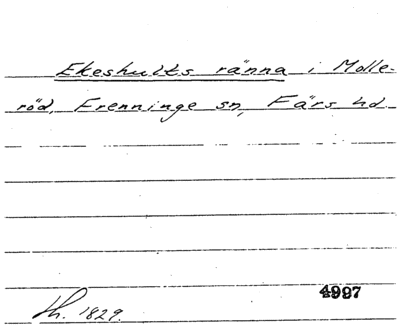 Ekeshults ränna i Molle-
röd, Frenninge sn, Färs hd.
4997
Th. 1829.